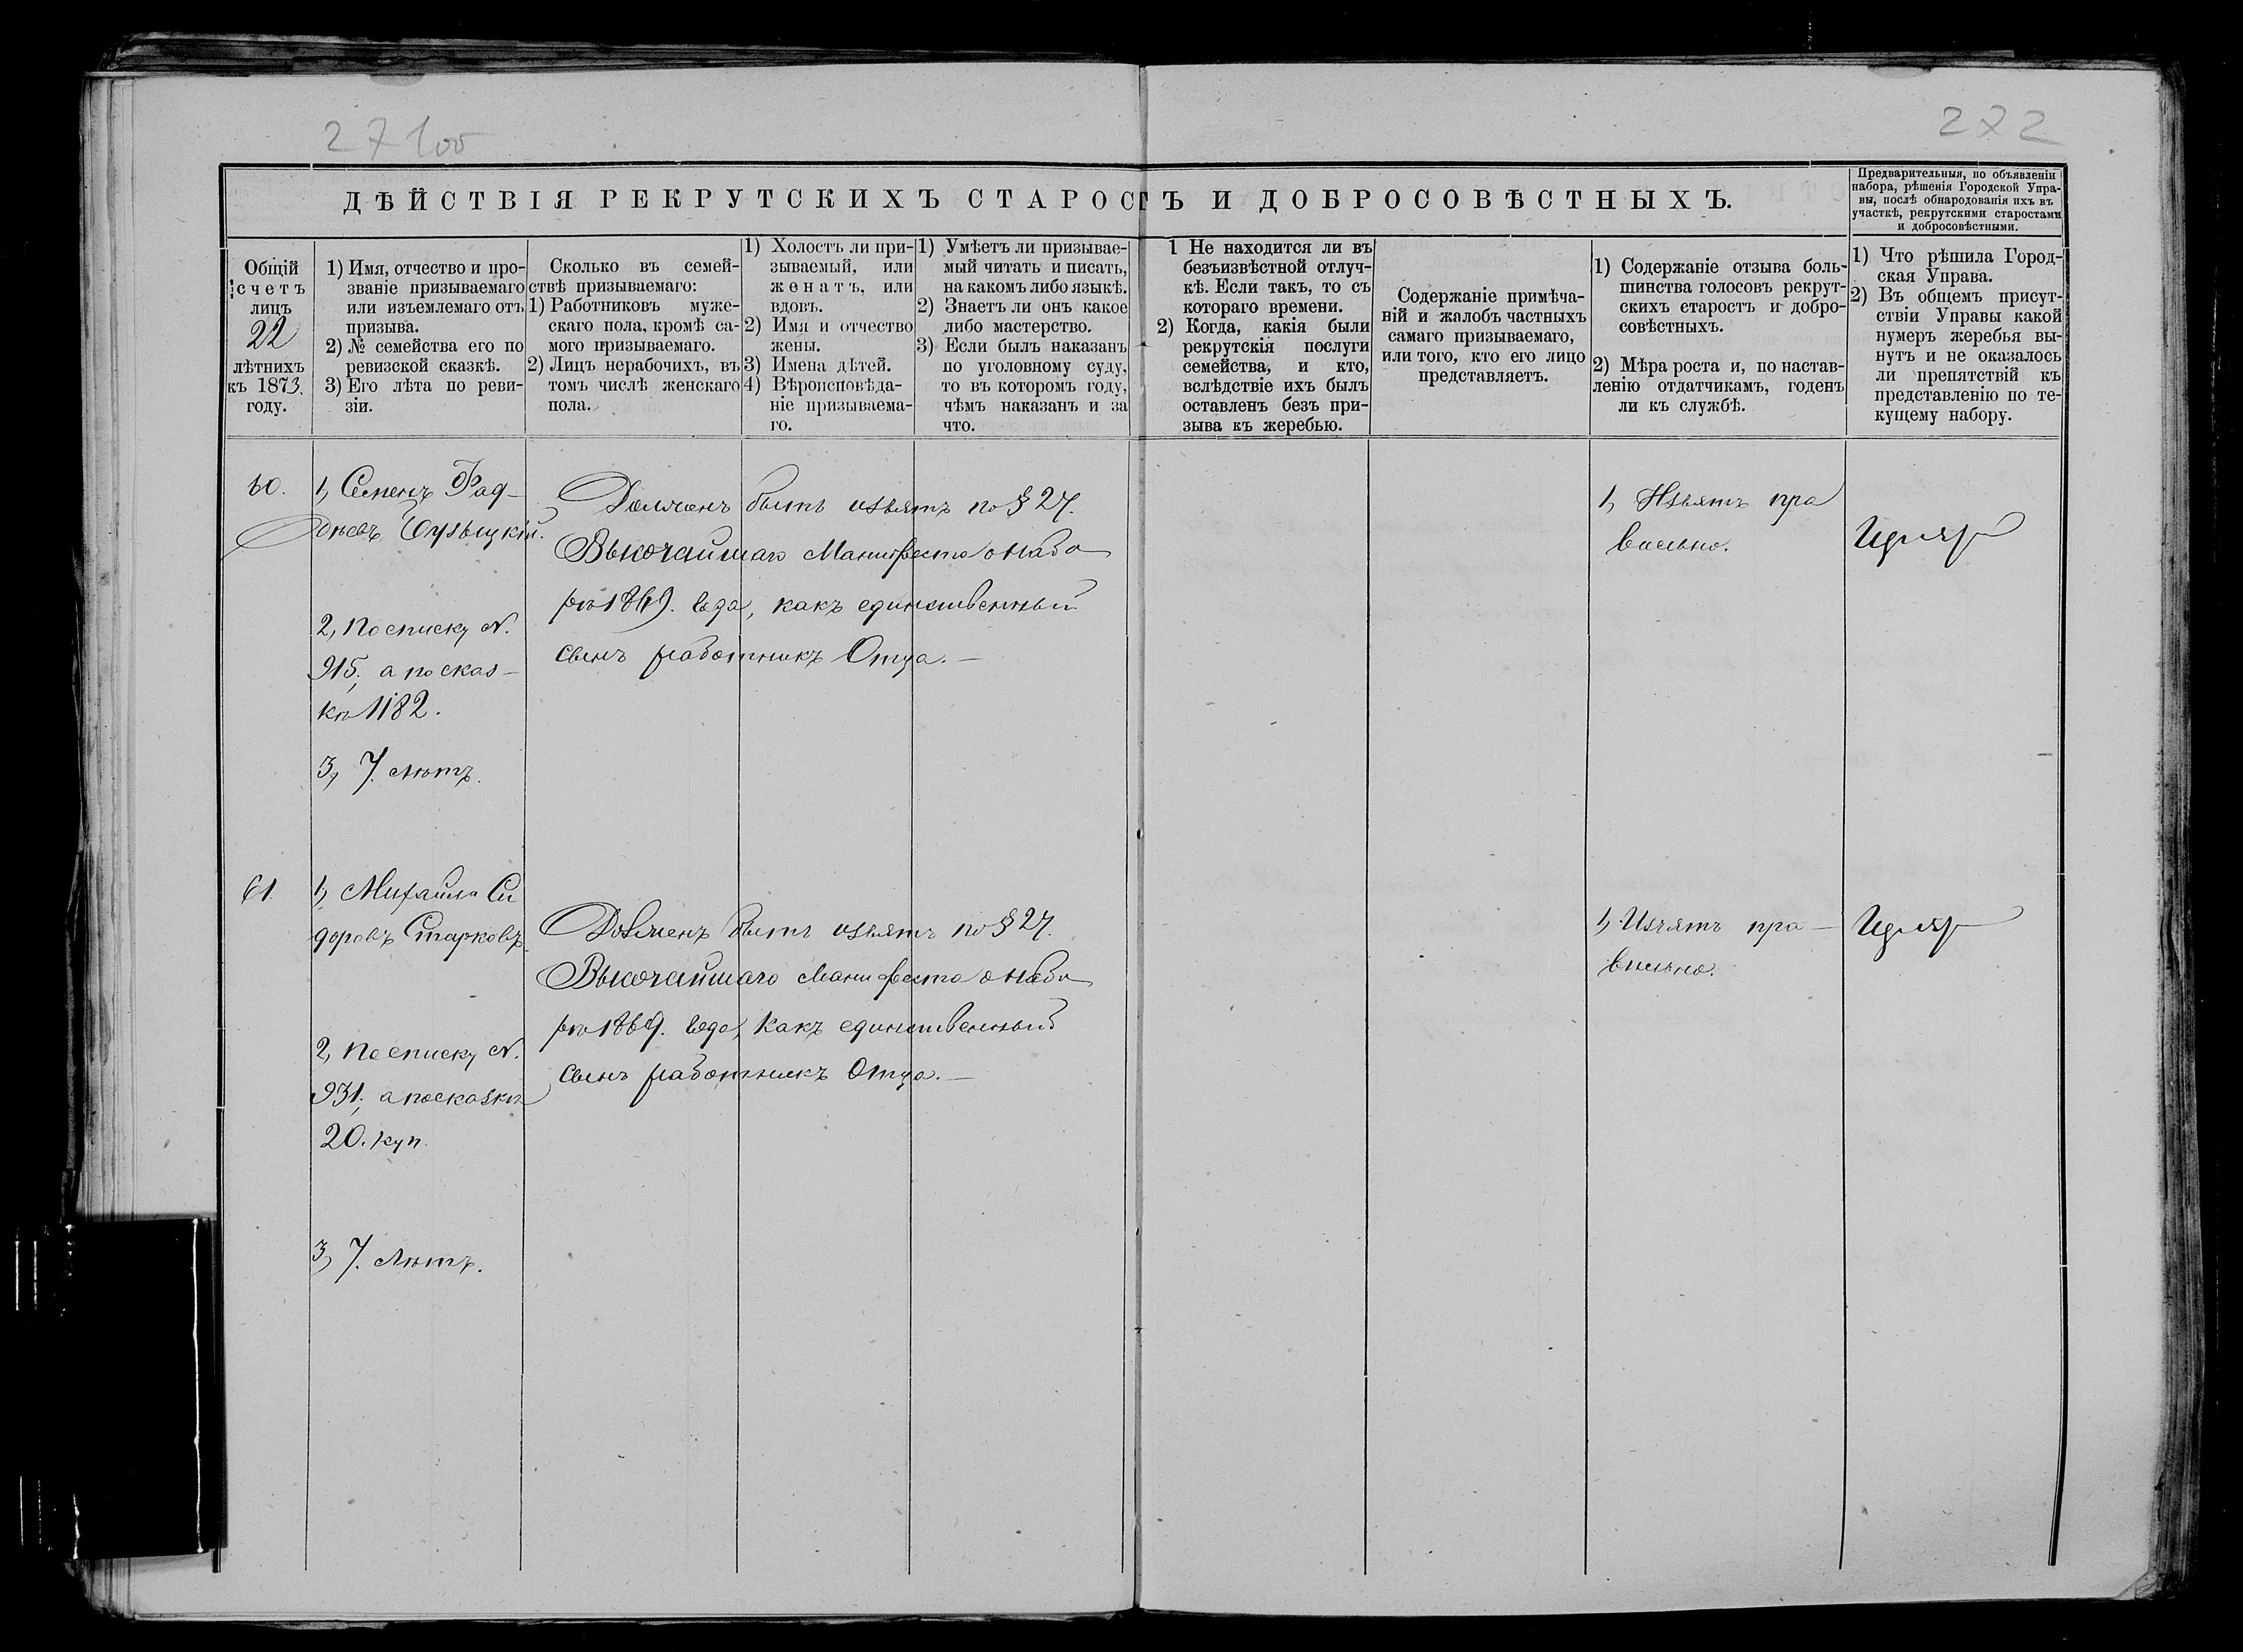 271об
272
ДѢЙСТВІЯ РЕКРУТСКИХЪ СТАРОСТЪ И ДОБРОСОВѢСТНЫХЪ.
Предварительныя, по объявленіи
набора, рѣшенія Городской Упра-
вы, послѣ обнародованія ихъ въ
участкѣ, рекрутскими старостами
и добросовѣстными.
Общій
счетъ
лицъ
22
лѣтнихъ
къ 1873.
году.
1) Имя, отчество и про-
званіе призываемаго
или изъемлемаго отъ
призыва.
2) № семейства его по
ревизской сказкѣ.
3) Его лѣта по реви-
зіи.
Сколько въ семей-
ствѣ призываемаго:
1) Работниковъ муже-
скаго пола, кромѣ са-
мого призываемаго.
2) Лицъ нерабочихъ, въ
томъ числѣ женскаго
пола.
1) Холостъ ли при-
зываемый, или
женатъ, или
вдовъ.
2) Имя и отчество
жены.
3) Имена дѣтей.
4) Вѣроисповѣда-
ніе призываема-
го.
1) Умѣетъ ли призывае-
мый читать и писать,
на какомъ либо языкѣ.
2) Знаетъ ли онъ какое
либо мастерство.
3) Если былъ наказанъ
по уголовному суду,
то въ которомъ году,
чѣмъ наказанъ и за
что.
1 Не находится ли въ
безъизвѣстной отлуч-
кѣ. Если такъ, то съ
котораго времени.
2) Когда, какія были
рекрутскія послуги
семейства, и кто,
вслѣдствіе ихъ былъ
оставленъ безъ при-
зыва къ жеребью.
Содержаніе примѣча-
ній и жалобъ частныхъ
самаго призываемаго,
или того, кто его лицо
представляетъ.
1) Содержаніе отзыва боль-
шинства голосовъ рекрут-
скихъ старостъ и добро-
совѣстныхъ.
2) Мѣра роста и, по настав-
ленію отдатчикамъ, годенъ
ли къ службѣ.
1) Что рѣшила Город-
ская Управа.
2) Въ общемъ присут-
ствіи Управы какой
нумеръ жеребья вы-
нутъ и не оказалось
ли препятствій къ
представленію по те-
кущему набору.
60.
1, Семенъ Фад-
дѣевъ
2, По списку N.
915, а по сказ-
кѣ 1182.
3, 7. лѣтъ.
Долженъ быть изъятъ по § 27.
Высочайшаго Манифеста о набо
рѣ 1869. года, какъ единственный
сынъ работникъ Отца. —
1, Изъятъ пра
вильно.
61.
1, Михайла Си
доровъ Старковъ
2, По списку N.
931, а по сказкѣ
20. куп.
3, 7. лѣтъ.
Долженъ быть изъятъ по § 27.
Высочайшаго Манифеста о набо
рѣ 1869. года, какъ единственный
сынъ работникъ Отца. —
1, Изъятъ пра—
вильно.